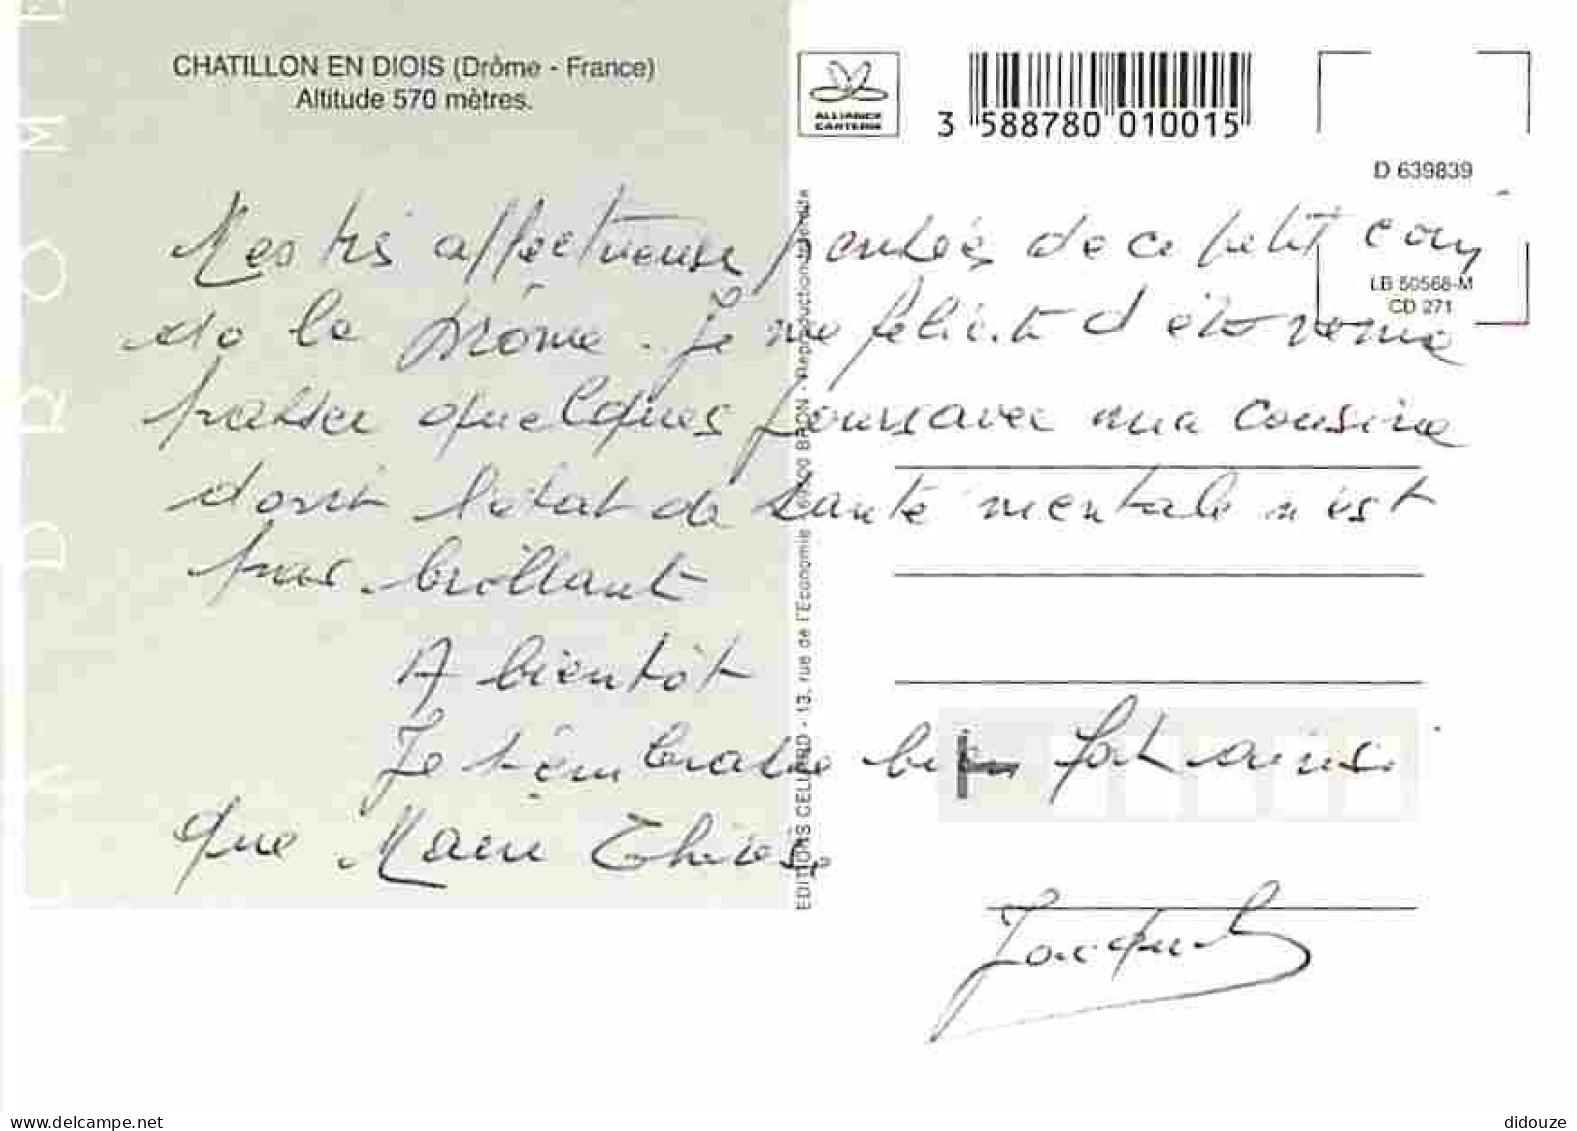 CHATILLON EN DIOIS (Drôme - France)
Altitude 570 mètres.
LA DROME
ALLIANCE
CARTERIE
3 588780 010015
D 639839
LB 50568-M
CD 271
Mes très affectueuses pensées de ce petit coin
de la Drôme. Je me félicite d'être venue
passer quelques jours avec ma cousine
dont l'état de santé mentale n'est
pas brillant
A bientôt
Je t'embrasse bien fort ainsi
que Marie Thérèse
EDITIONS CELLARD - 13, rue de l'Economie - 69500 BRON - Reproduction interdite
delcampe.net
didouze